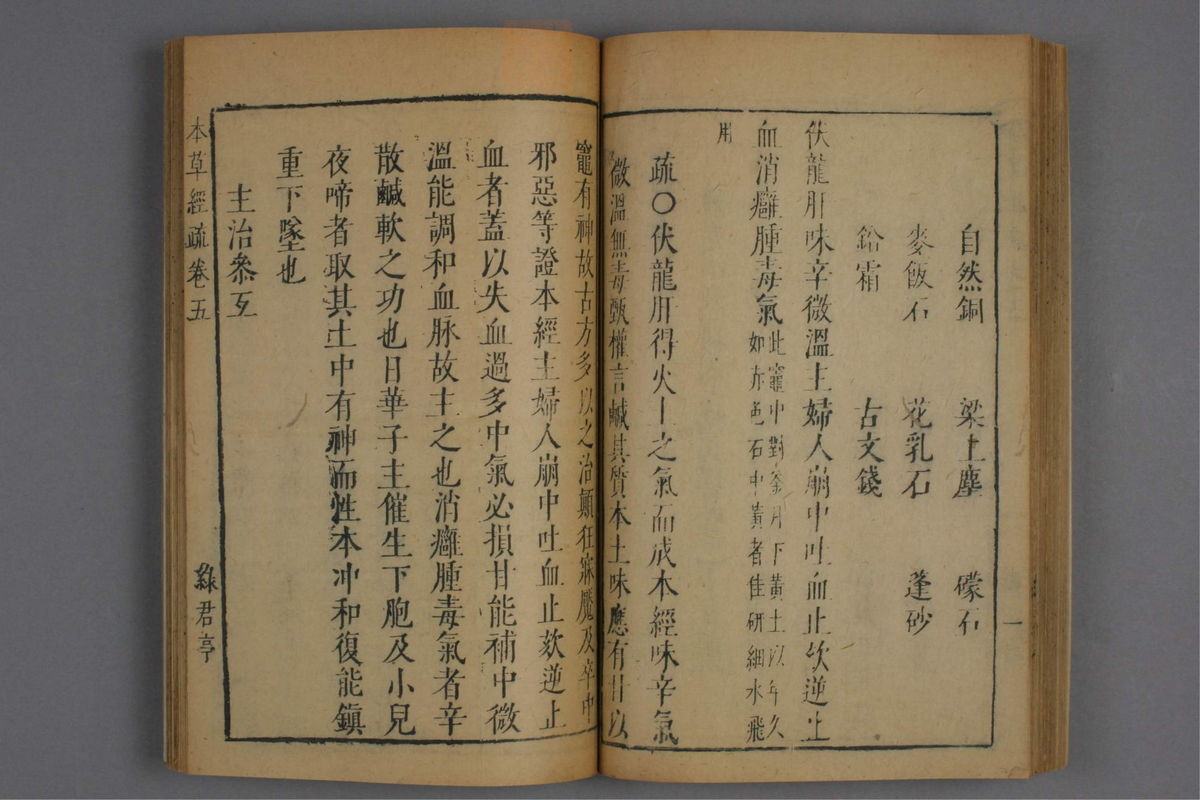 自然銅 梁上塵 礞石
麥飯石 花乳石 蓬砂
鉛霜 古文錢
伏龍肝味辛微溫主婦人崩中吐血止欬逆止
血消癰腫毒氣此竈中對釜月下黃土以年久
如赤色石中黃者佳研細水飛
用
疏〇伏龍肝得火土之氣而成本經味辛氣
微溫無毒甄權言鹹其質本土味應有甘以
竈有神故古方多以之治顛狂寐魘及卒中
邪惡等證本經主婦人崩中吐血止欬逆止
血者蓋以失血過多中氣必損甘能補中微
溫能調和血脉故主之也消癰腫毒氣者辛
散鹹軟之功也日華子主催生下胞及小兒
夜啼者取其土中有神而性本冲和復能鎮
重下墜也
主治叅互
本草經疏卷五
綠君亭
一